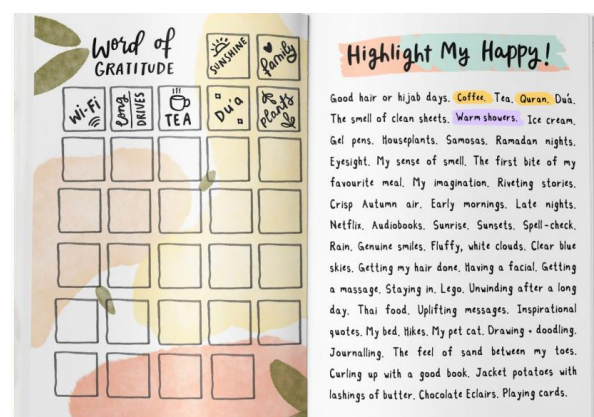 Word of
GRATITUDE
SUNSHINE
family
Wi-Fi
long
DRIVES
TEA
Du'a
plants
Highlight My Happy!
Good hair or hijab days. Coffee. Tea. Quran. Du'a.
The smell of clean sheets. Warm showers. Ice cream.
Gel pens. Houseplants. Samosas. Ramadan nights.
Eyesight. My sense of smell. The first bite of my
favourite meal. My imagination. Riveting stories.
Crisp Autumn air. Early mornings. Late nights.
Netflix. Audiobooks. Sunrise. Sunsets. Spell-check.
Rain. Genuine smiles. Fluffy, white clouds. Clear blue
skies. Getting my hair done. Having a facial. Getting
a massage. Staying in. Lego. Unwinding after a long
day. Thai food. Uplifting messages. Inspirational
quotes. My bed. Hikes. My pet cat. Drawing + doodling.
Journalling. The feel of sand between my toes.
Curling up with a good book. Jacket potatoes with
lashings of butter. Chocolate Eclairs. Playing cards.